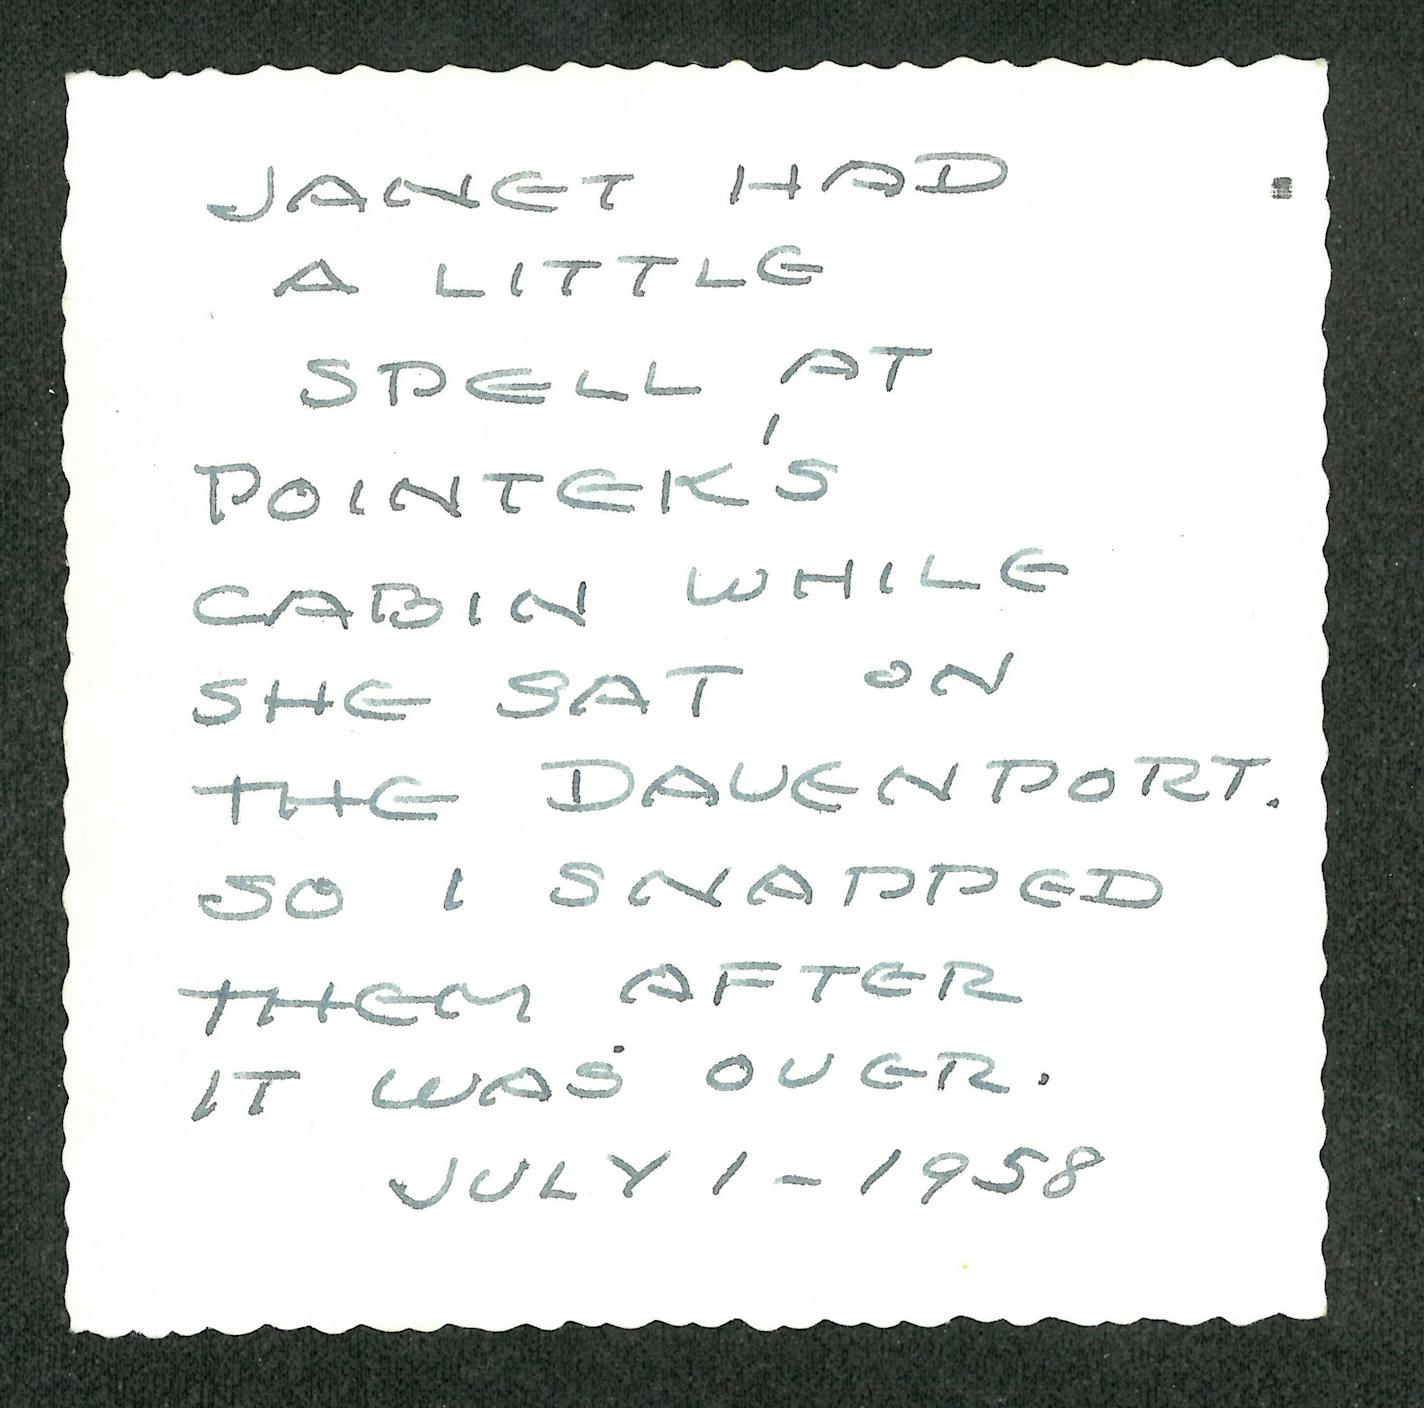 JANET HAD
A LITTLE
SPELL AT
POINTEK'S
CABIN WHILE
SHE SAT ON
THE DAVENPORT.
SO I SNAPPED
THEM AFTER
IT WAS OVER.
JULY 1 - 1958